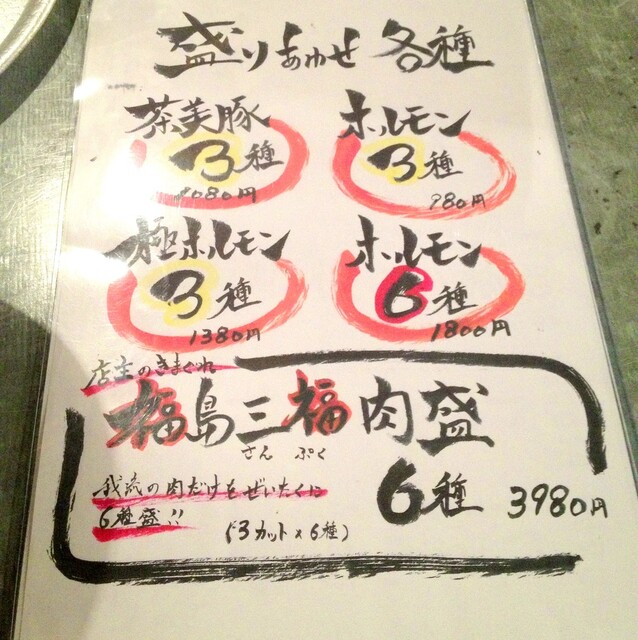 盛りあわせ 各種
茶美豚
3種
1080円
ホルモン
3種
980円
極ホルモン
3種
1380円
ホルモン
6種
1800円
店主のきまぐれ
福島三福肉盛
さん ぷく
6種 3980円
我流の肉だけをぜいたくに
6種盛!!
(3カット×6種)